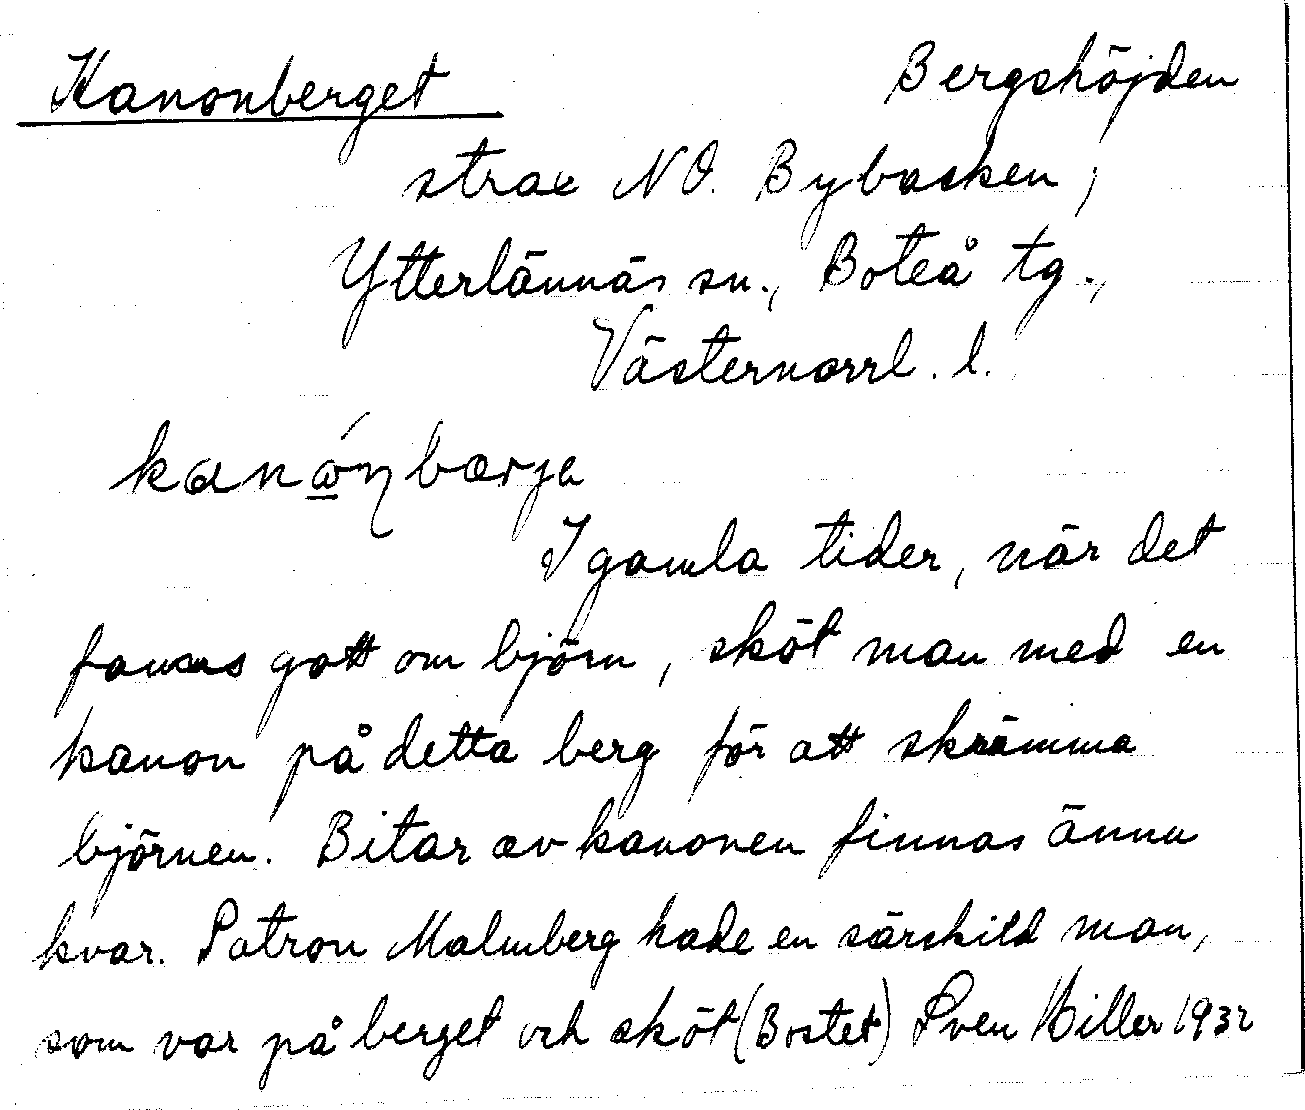 Kanonberget Bergshöjden
strax NO. Bybacken,
Ytterlännäs sn., Boteå tg.,
Västernorrl. l.
kanɷ́ŋbærja
I gamla tider, när det
fanns gott om björn, sköt man med en
kanon på detta berg för att skrämma
björnen. Bitar av kanonen finnas ännu
kvar. Patron Malmberg hade en särskild man,
som var på berget och sköt (Bostet) Sven Hiller 1932